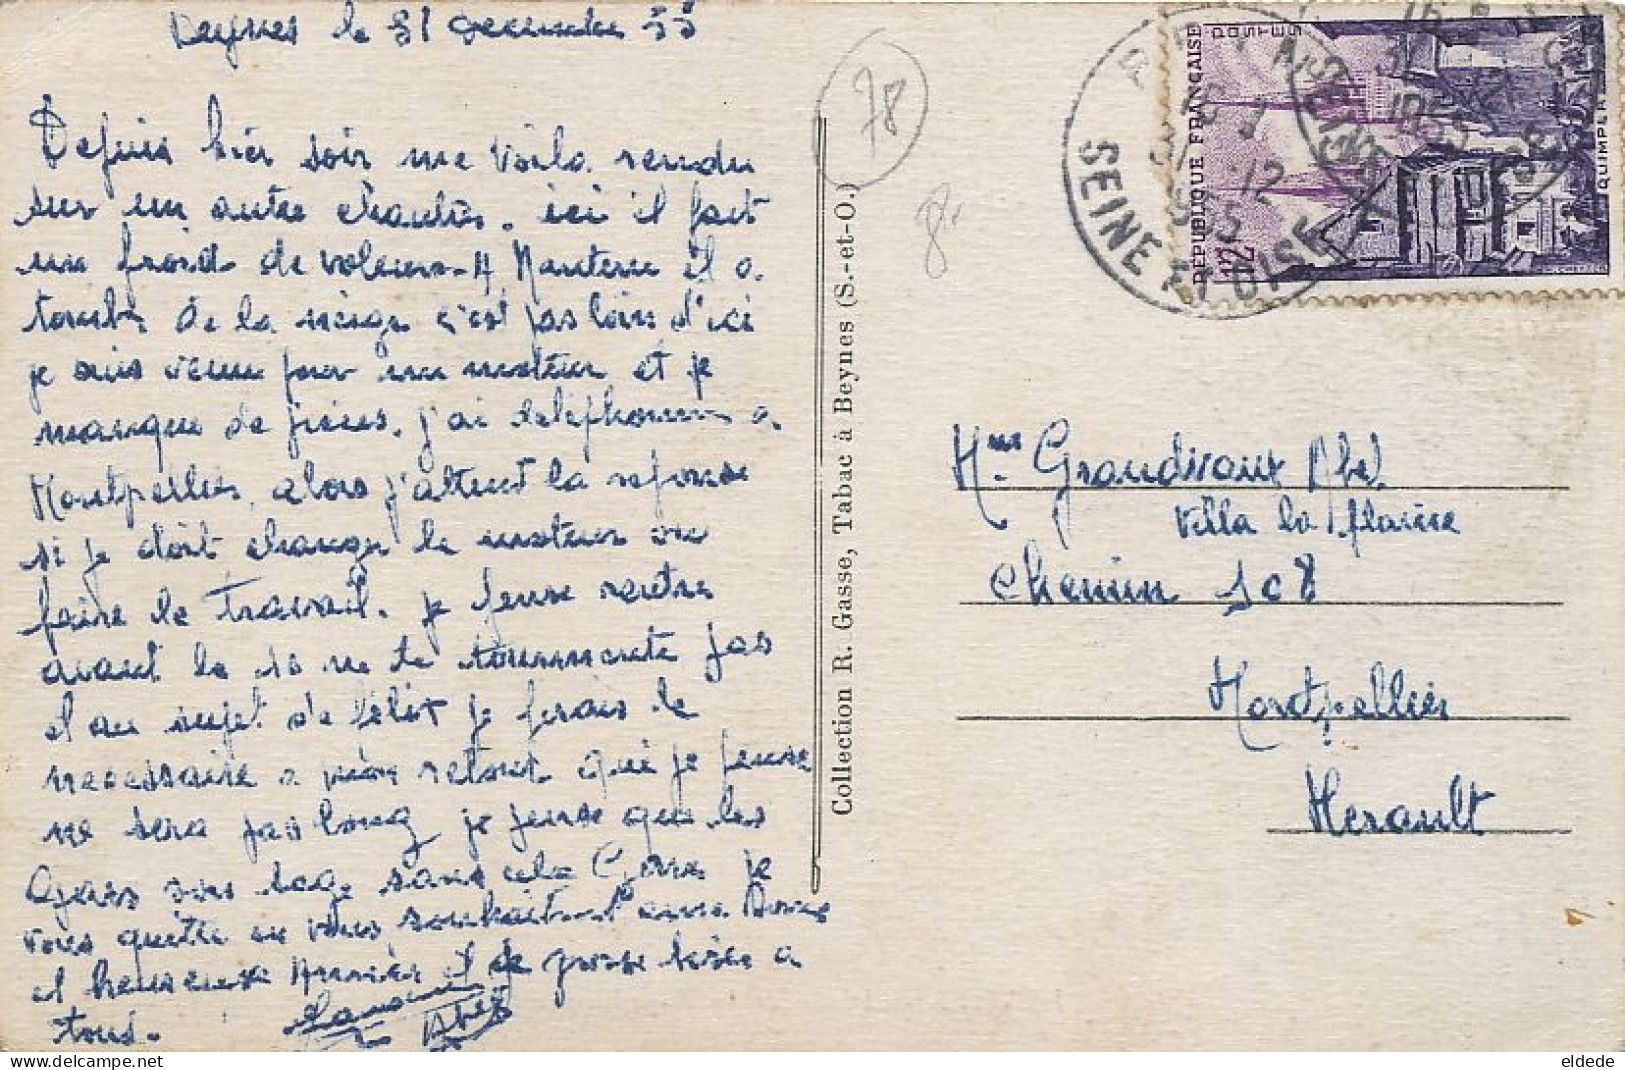 Beynes le 31 decembre 55
Depuis hier soir me voila rendu
sur un autre chantier. ici il fait
un froid de voleurs. A Nanterre il a
tombé de la neige c'est pas loin d'ici
je suis venu pour un moteur et je
manque de pieces. j'ai telephoner a
Montpellier, alors j'attent la reponse
si je doit changer le moteur ou
faire le travail. je pense rentre
avant le 10 ne te tourmente pas
et au sujet de je ferais le
necessaire a mon retour qui je pense
ne sera pas long je pense que les
sans je
vous quitte en vous souhaitent une bonne
et heureuse Année et de grosse bises a
tous.
Abel
78
8-
Collection R. Gasse, Tabac à Beynes (S.-et-O.)
REPUBLIQUE FRANÇAISE
POSTES
12F
QUIMPER
SEINE ET OISE
16 H
31-12
1955
Mme Grandvaux Abel
Villa la
Chemin 108
Montpellier
Herault
eldede